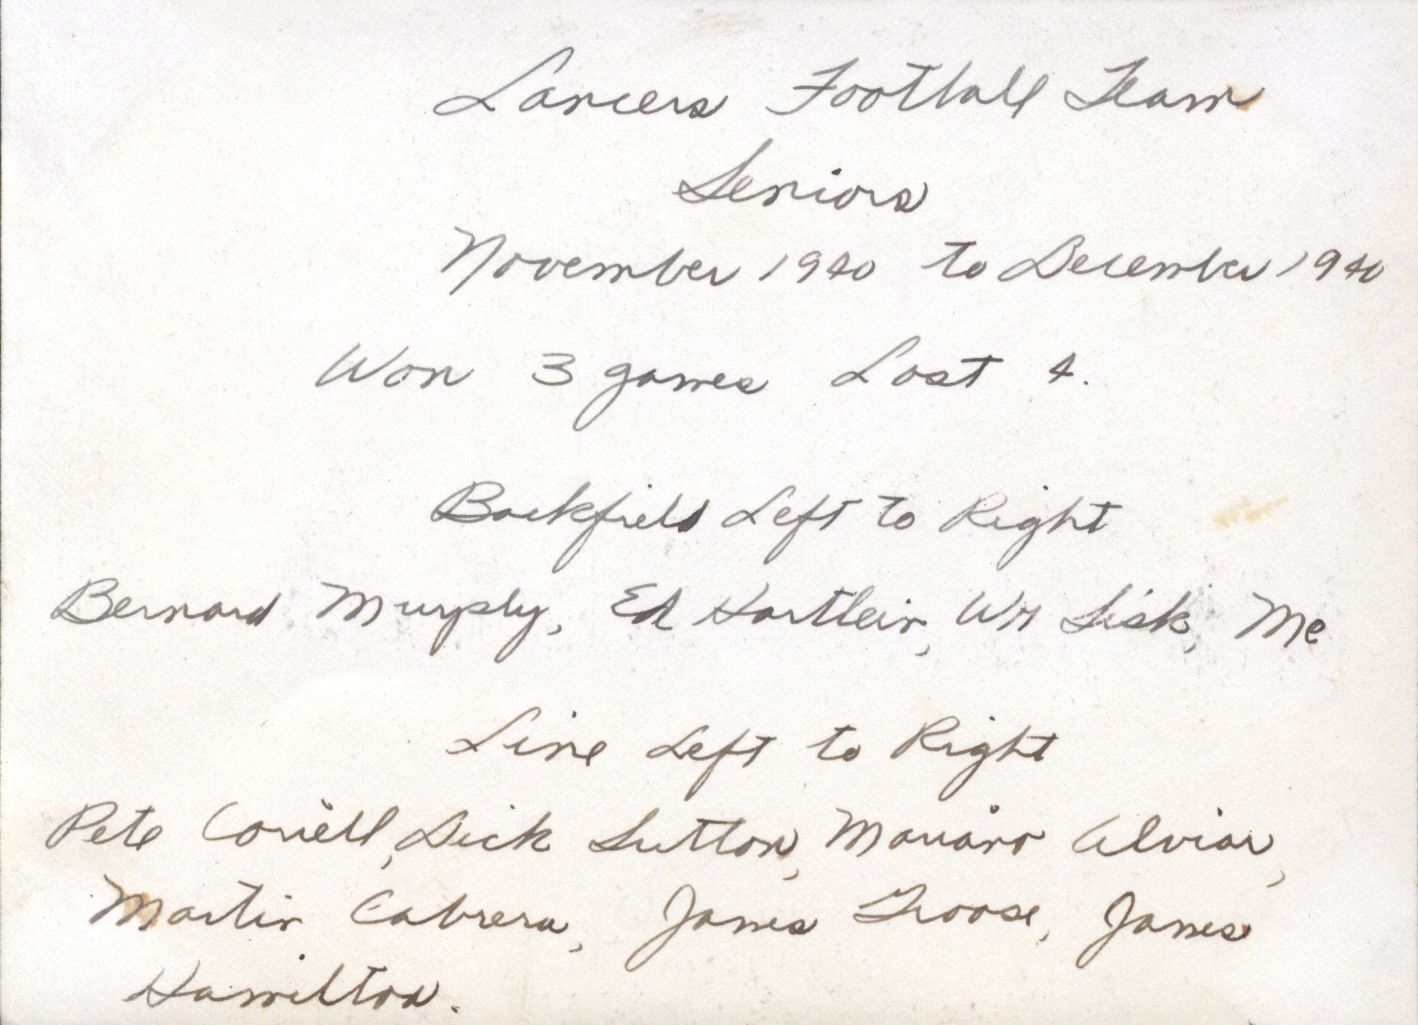 Lancers Football Team
Seniors
November 1940 to December 1940
Won 3 games Lost 4.
Backfield Left to Right
Bernard Murphy, Ed Hartlein, Wm Sisk, Me
Line Left to Right
Pete Dick Sutton, Mariano Alviar,
Martin Cabrera, James James
Hamilton.